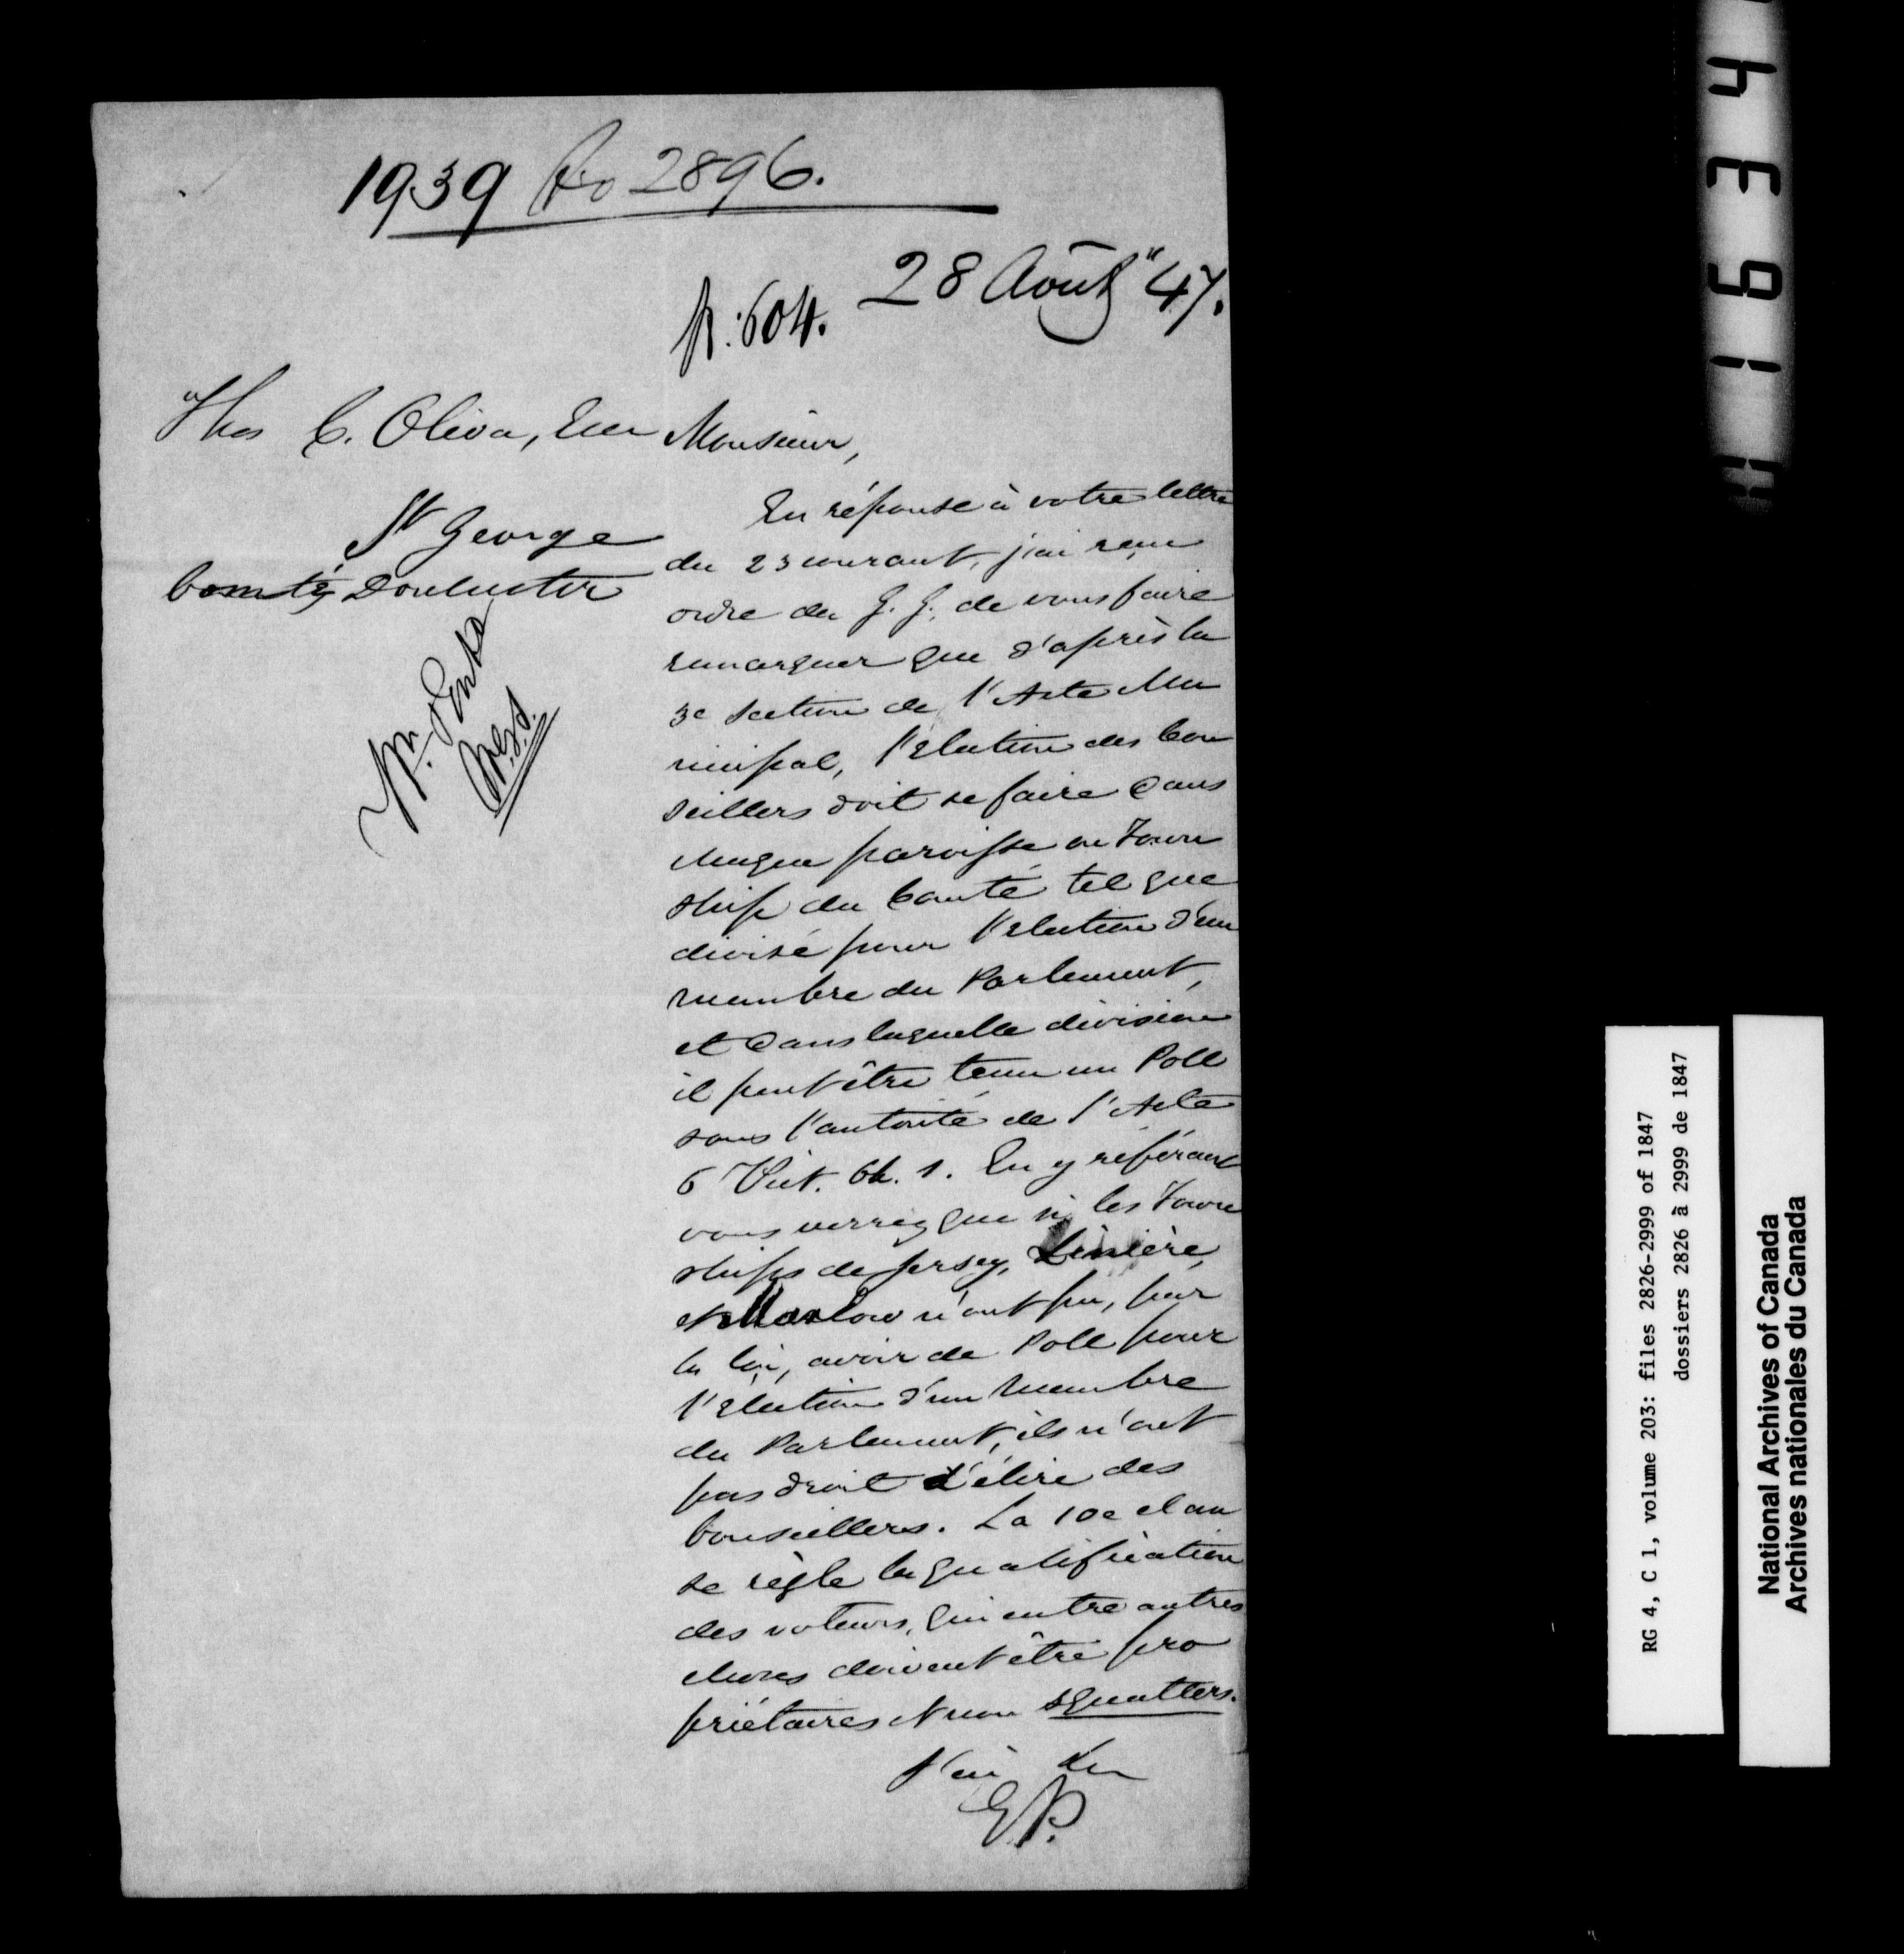 1939 No 2896.
28 Août "47.
p. 604.
Thos C. Oliva, Ecr
St George
Comté Dorchester
Monsieur,
En réponse à votre lettre
du 23 courant, j'ai reçu
ordre du G. G. de vous faire
remarquer que d'après la
3e section de l'Acte Mu
nicipal, l'election des Con
seillers doit se faire dans
chaque paroisse ou Town
ship du Comté tel que
divisé pour l'election d'un
membre du Parlement,
et dans laquelle division
il peut être tenu un Poll
sous l'autorité de l'Acte
6 Vict. Ch. 1. En y référant
vous verrez que si les Town
ships de Jersey, Linière,
et Marlow n'ont pu, par
la loi, avoir de Poll pour
l'election d'un Membre
du Parlement, ils n'ont
pas droit d'élire des
Conseillers. La 10e clau
se règle la qualification
des voteurs, qui entre autres
choses doivent être pro
priétaires et non squatters.
J'ai
E.P.
16344
RG 4, C 1, volume 203: files 2826-2999 of 1847
dossiers 2826 à 2999 de 1847
National Archives of Canada
Archives nationales du Canada